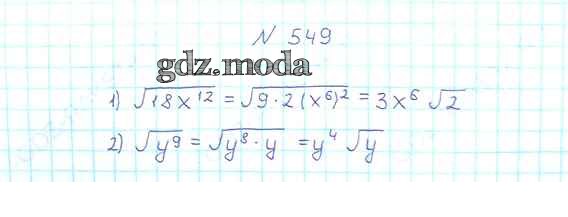 N 549
gdz.moda
1) √18x¹² = √9·2(x⁶)² = 3x⁶ √2
2) √y⁹ = √y⁸·y = y⁴ √y